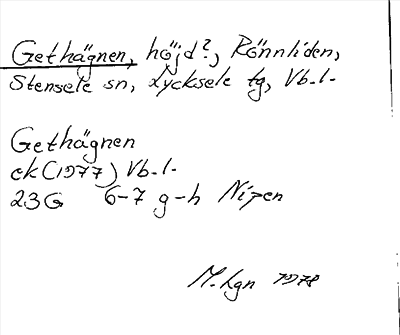 Gethägnen, höjd?, Rönnliden,
Stensele sn, Lycksele tg, Vb.l.
Gethägnen
ek (1977) Vb.l.
23G 6-7 g-h Nipen
M. Lgn 1978